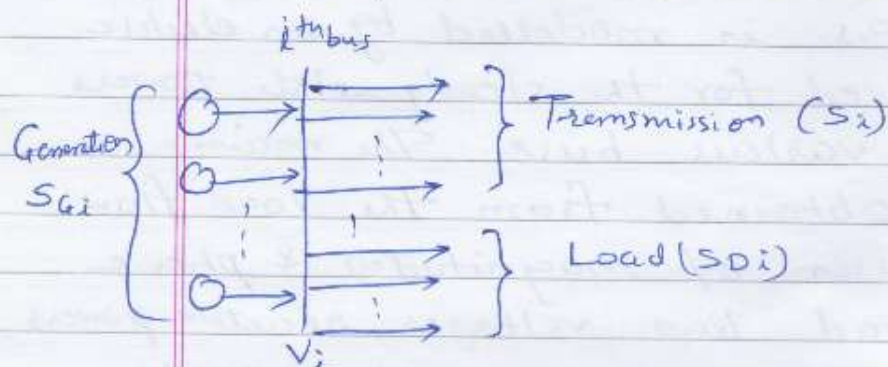 ith bus
Generation
SGi
Transmission (Si)
Load (SDi)
Vi